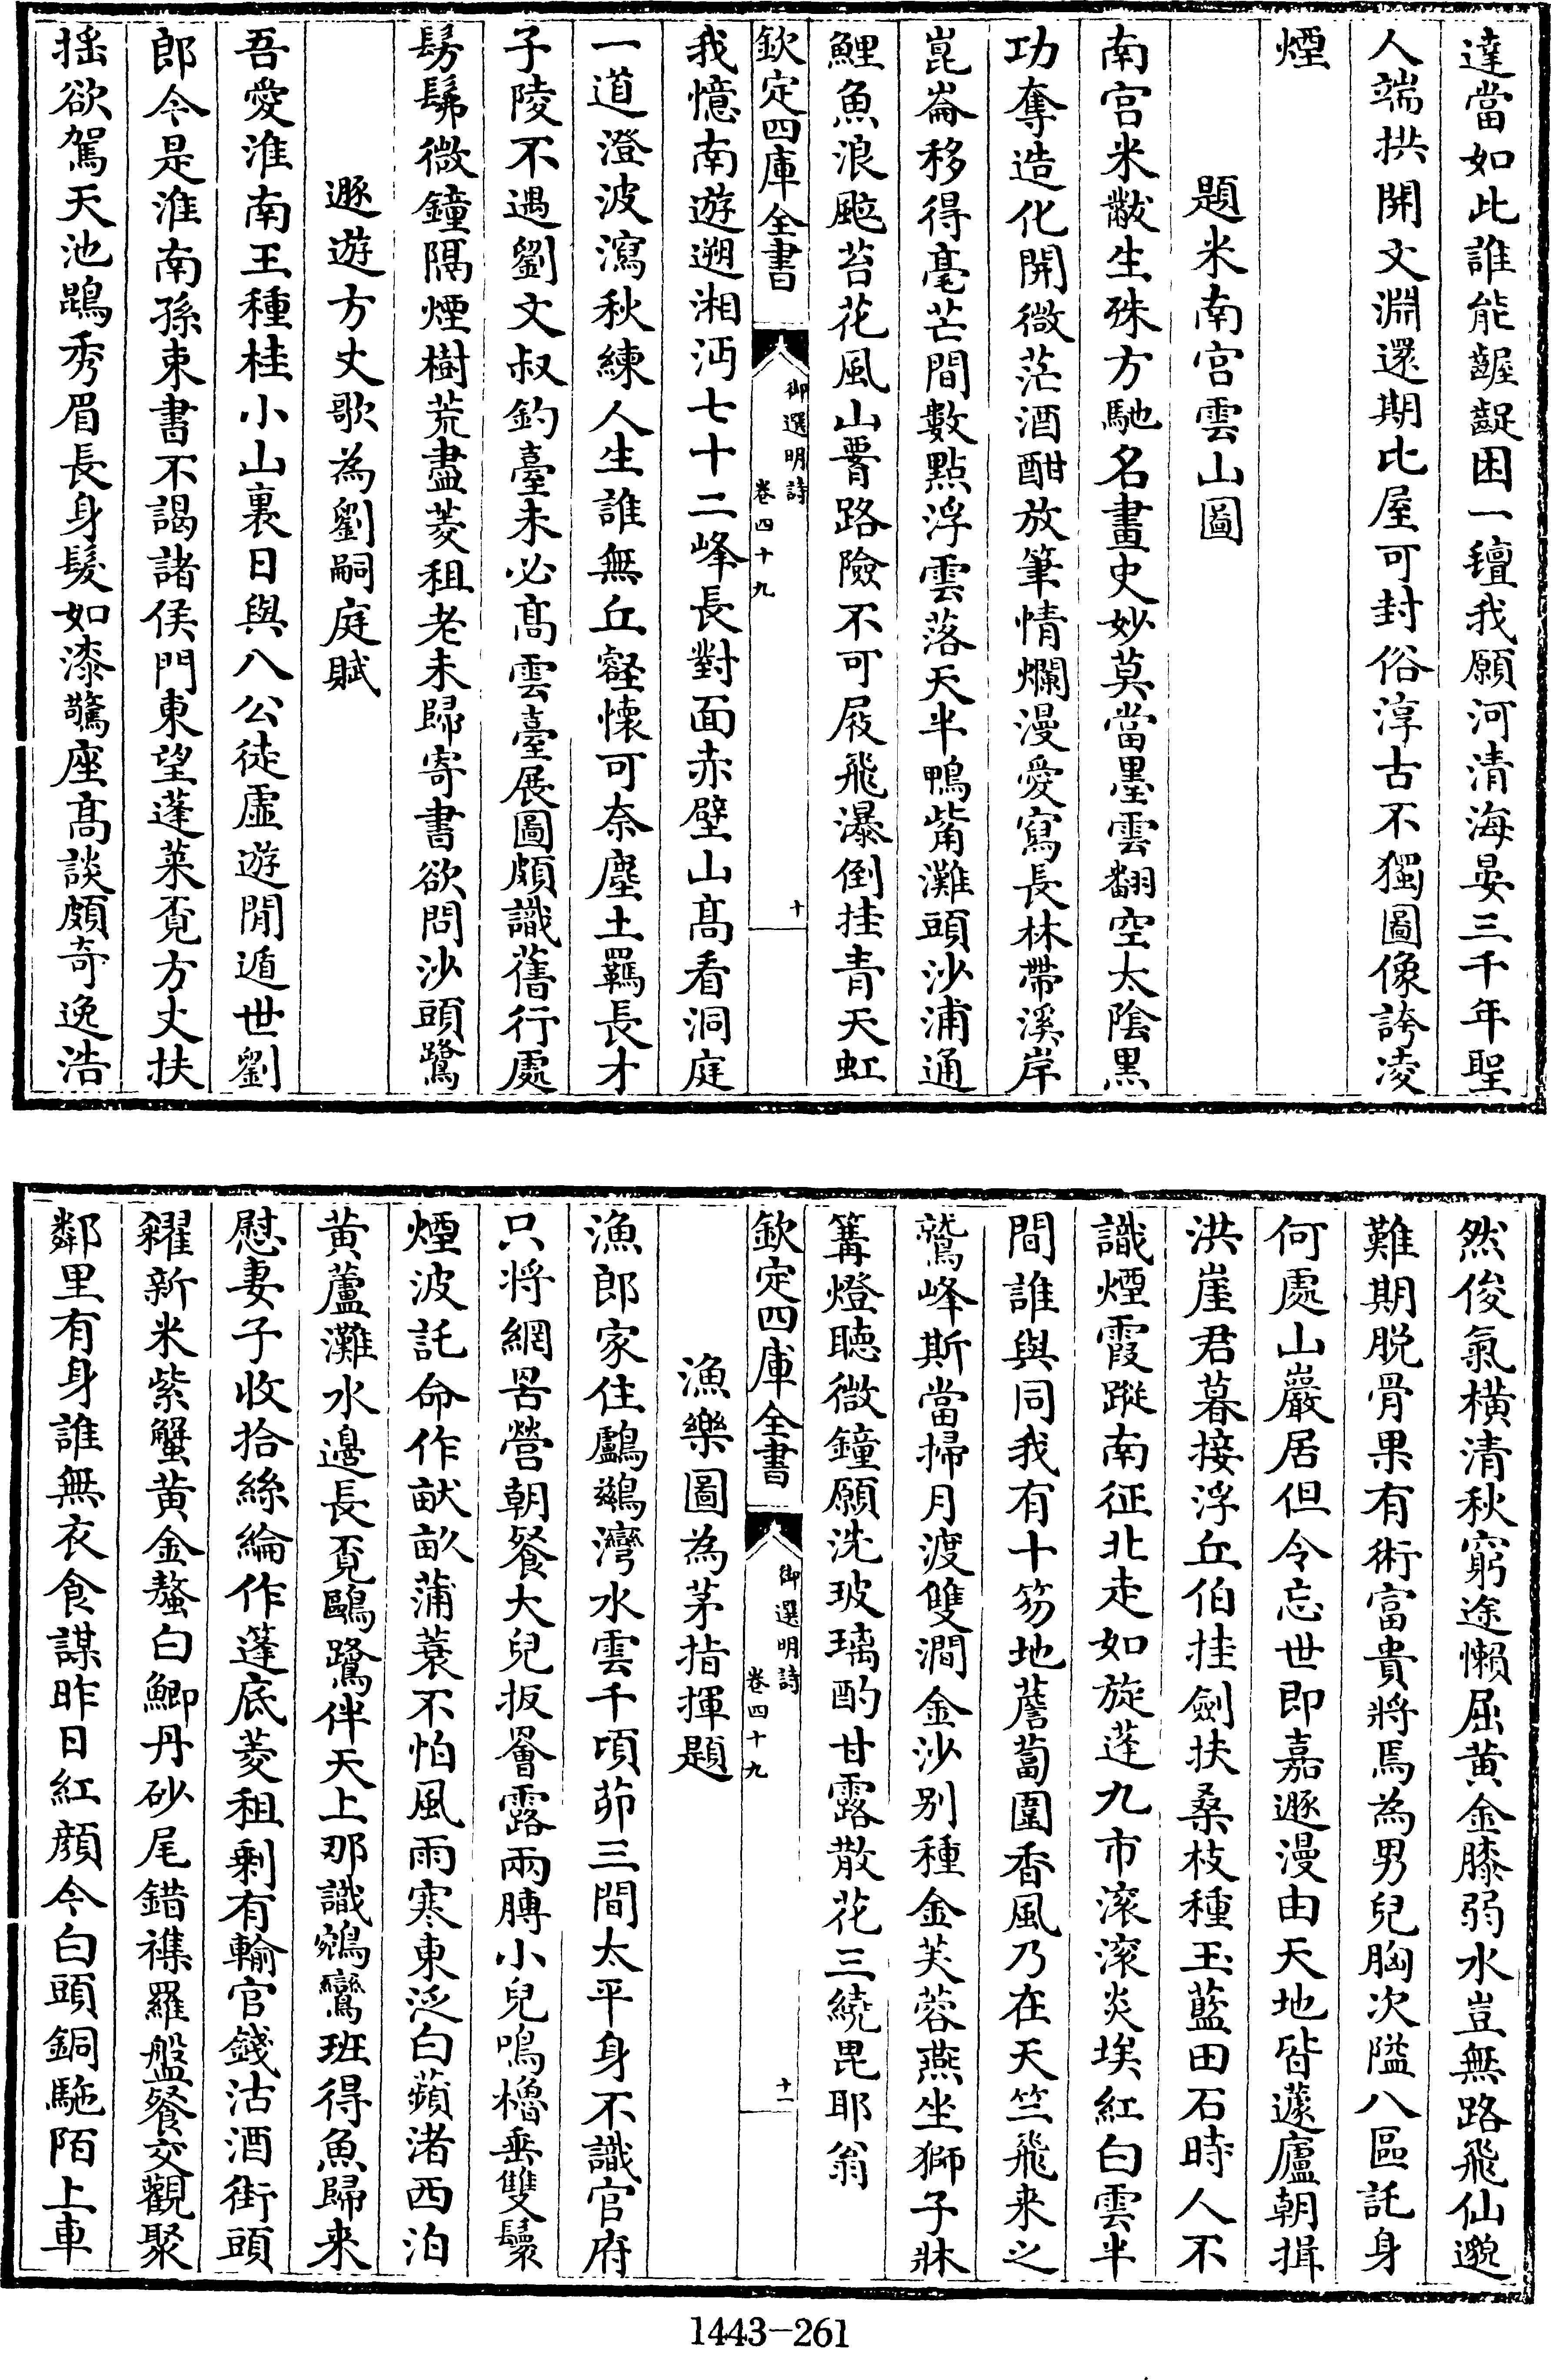 達當如此誰能齷齪困一䵣我願河清海晏三千年聖
人端拱開文淵還期比屋可封俗淳古不獨圖像誇凌
煙
題米南宫雲山圖
南宫米黻生殊方馳名畫史妙莫當墨雲翻空太陰黒
功奪造化開微茫酒酣放筆情爛漫愛寫長林帶溪岸
崑崙移得毫芒間數點浮雲落天半鴨觜灘頭沙浦通
鯉魚浪颭苔花風山㬱路險不可屐飛瀑倒挂青天虹
欽定四庫全書
御選明詩
卷四十九
十
我憶南遊遡湘沔七十二峰長對面赤壁山髙看洞庭
一道澄波瀉秋練人生誰無丘壑懐可奈塵土羈長才
子陵不遇劉文叔釣臺未必髙雲臺展圖頗識舊行處
髣髴微鐘隔煙樹荒盡菱租老未歸寄書欲問沙頭鷺
遯遊方丈歌為劉嗣庭賦
吾愛淮南王種桂小山裏日與八公徒虛遊閒遁世劉
郎今是淮南孫束書不謁諸侯門東望蓬萊覔方丈扶
揺欲駕天池鵾秀眉長身髮如漆驚座髙談頗奇逸浩
然俊氣横清秋窮途懶屈黄金膝弱水豈無路飛仙邈
難期脱骨果有術富貴將焉為男兒胸次隘八區託身
何處山巖居但令忘世即嘉遯漫由天地皆蘧廬朝揖
洪崖君暮接浮丘伯挂劍扶桑枝種玉藍田石時人不
識煙霞蹤南征北走如旋蓬九市滚滚炎埃紅白雲半
間誰與同我有十笏地薝蔔園香風乃在天竺飛来之
鷲峰斯當掃月渡雙澗金沙别種金芙蓉燕坐獅子牀
篝燈聴微鐘願洗玻璃酌甘露散花三繞毘耶翁
欽定四庫全書
御選明詩
卷四十九
十一
漁樂圖為茅指揮題
漁郎家住鸕鷀灣水雲千頃茆三間太平身不識官府
只将網罟營朝餐大兒扳罾露兩膊小兒鳴櫓垂雙鬟
煙波託命作畎畝蒲蓑不怕風雨寒東泛白蘋渚西泊
黄蘆灘水邊長覔鷗鷺伴天上那識鵷鸞班得魚歸来
慰妻子收拾絲綸作篷底菱租剰有輸官錢沽酒街頭
糴新米紫蟹黄金螯白鯽丹砂尾錯襍羅盤餐交觀聚
鄰里有身誰無衣食謀昨日紅顔今白頭銅駞陌上車
1443-261